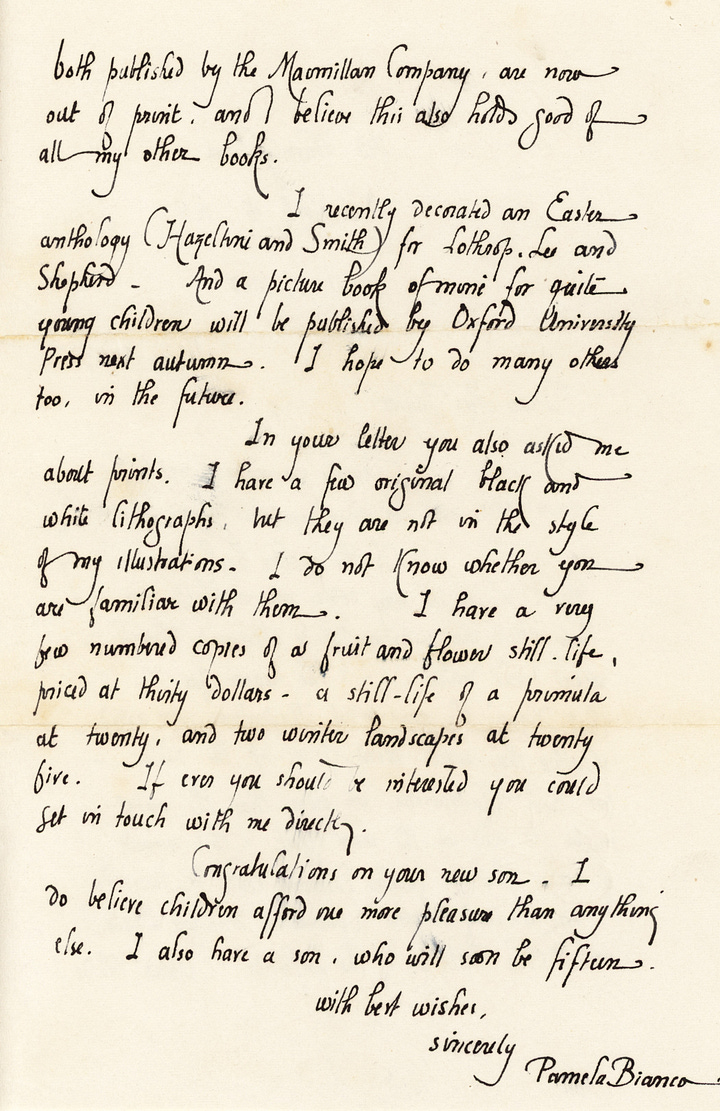 both published by the Macmillan Company, are now
out of print, and I believe this also holds good of
all my other books.
I recently decorated an Easter
anthology (Hazeltine and Smith) for Lothrop, Lee and
Shepherd - And a picture book of mine for quite
young children will be published by Oxford University
Press next autumn. I hope to do many others
too, in the future.
In your letter you also asked me
about prints. I have a few original black and
white lithographs, but they are not in the style
of my illustrations. I do not know whether you
are familiar with them. I have a very
few numbered copies of a fruit and flower still-life,
priced at thirty dollars - a still-life of a primula
at twenty, and two winter landscapes at twenty
five. If ever you should be interested you could
get in touch with me directly.
Congratulations on your new son - I
do believe children afford one more pleasure than anything
else. I also have a son, who will soon be fifteen.
with best wishes,
sincerely
Pamela Bianco